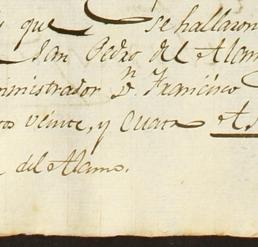 y que se hallaron
San Pedro del Alam
ministrador Dn. Francisco
tos veinte, y Cuatro
del Alamo.